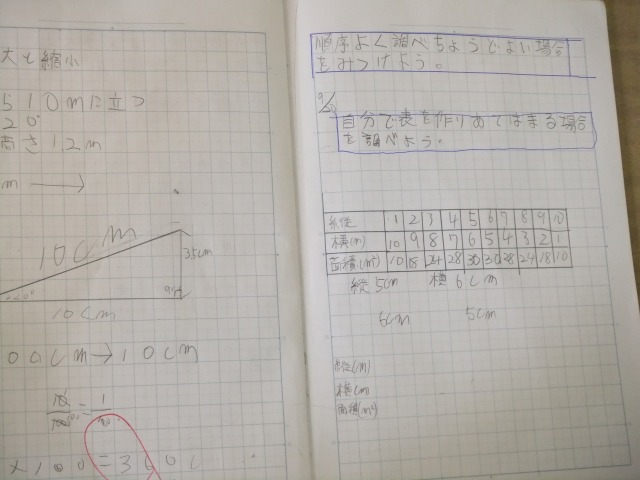 大と縮小
ら10mに立つ
20°
高さ1.2m
m →
10cm
3.5cm
20°
90°
10cm
00cm→10cm
×100=360c
順序よく調べちょうどよい場合
をみつけよう。
9/
自分で表を作りあてはまる場合
を調べよう。
縦 1 2 3 4 5 6 7 8 9 10
横(m) 10 9 8 7 6 5 4 3 2 1
面積(m²) 10 18 24 28 30 30 28 24 18 10
縦5cm 横6cm
6cm 5cm
縦(cm)
横(cm)
面積(m²)